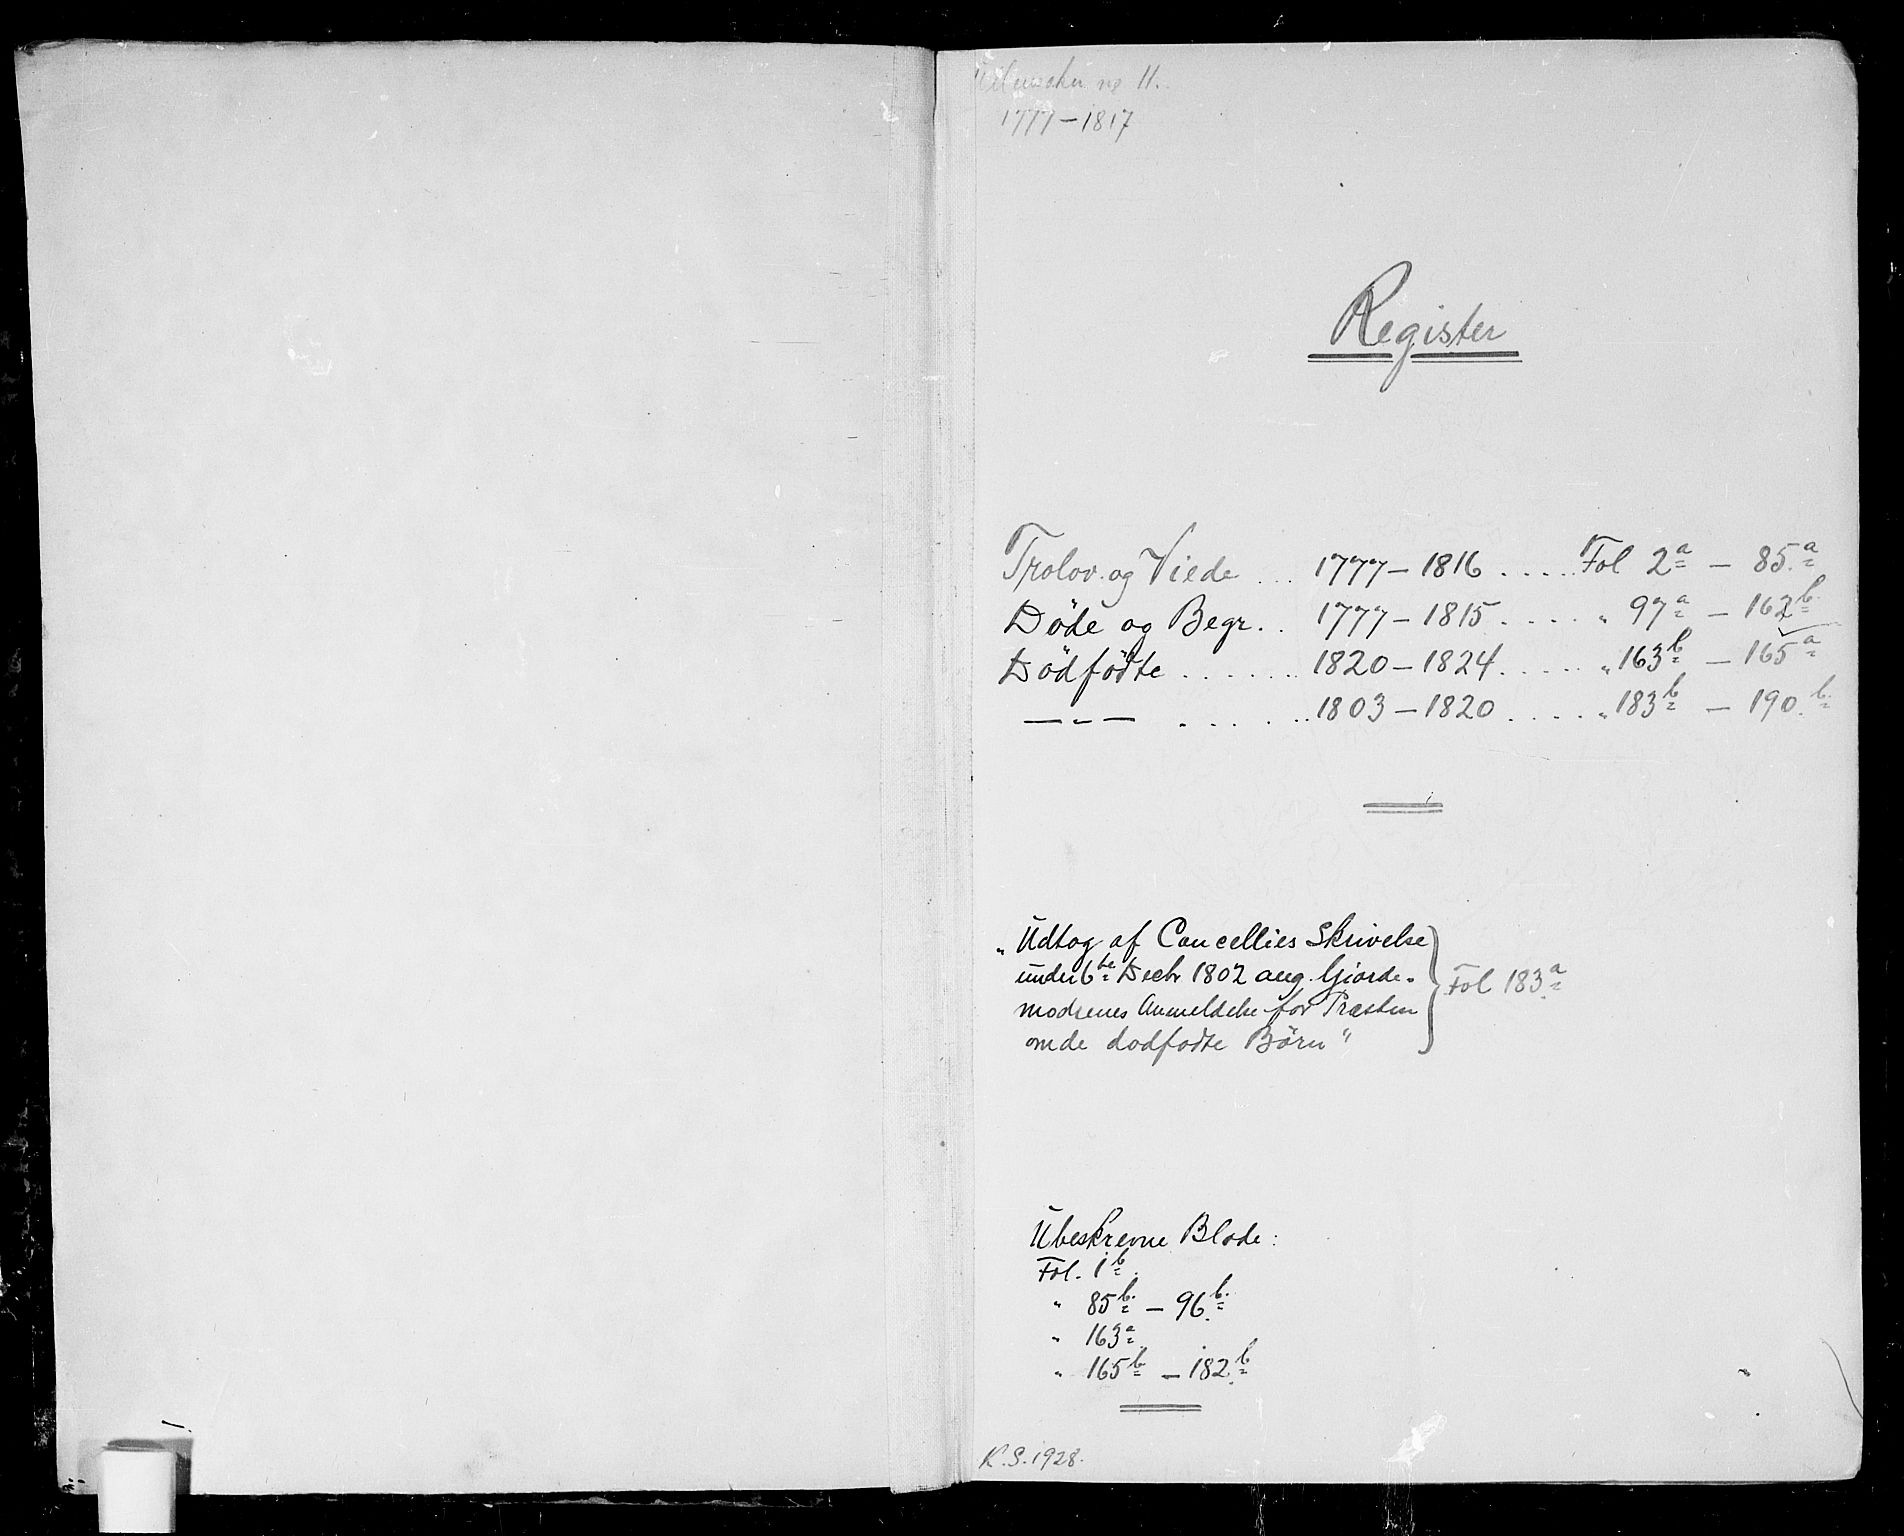 Ullensaker no 11.
1777-1817
Register
Trolov. og Viede ... 1777-1816 ..... Fol 2a - 85.a
Döde og Begr. . 1777-1815 ..... " 97a - 162b
Dödfödte ...... 1820-1824 ..... " 163b - 165a
— - — ...... 1803-1820 ..... " 183b - 190.b
„Udtog af Cancellies Skrivelse
under 6te Decbr 1802 ang. Giorde-
modrenes Anmeldelse for Præsten
om de dødfødte Börn"
Fol 183a
Ubeskrevne Blade:
Fol. 1b.
" 85b. - 96b.
" 163a
" 165b - 182b
K.S. 1928.